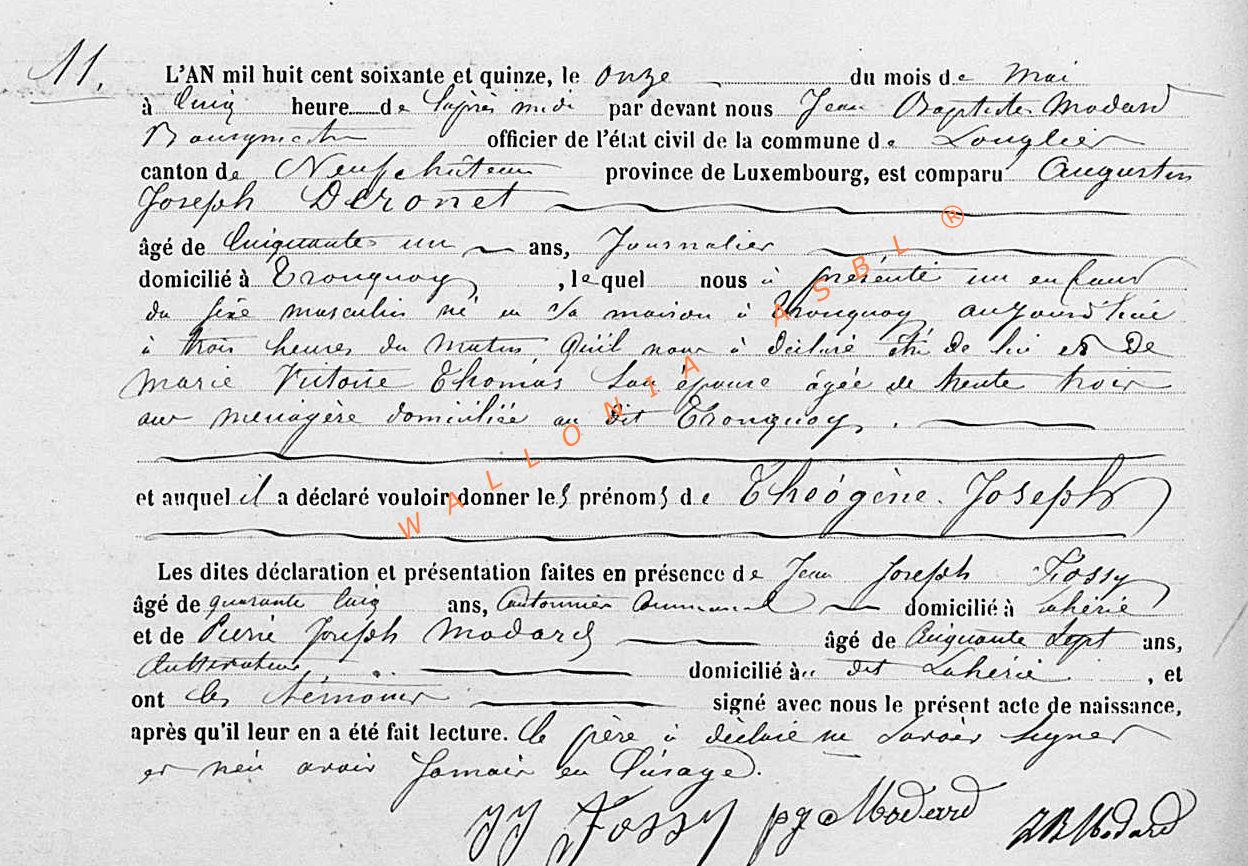 11.
L'AN mil huit cent soixante et quinze, le onze du mois de Mai
à Cinq heure de l'après midi par devant nous Jean Baptiste Modard
Bourgmestre officier de l'état civil de la commune de Longlier
canton de Neufchâteau province de Luxembourg, est comparu Augustin
Joseph Deronet
âgé de Cinquante un ans, Journalier
domicilié à Tronquoy, lequel nous à présenté un enfant
du sexe masculin né en sa maison à Tronquoy aujourd'hui
à trois heures du matin, qu'il nous à déclaré être de lui et de
Marie Victoire Thomas son épouse âgée de trente trois
ans menagère domiciliée au dit Tronquoy.
et auquel il a déclaré vouloir donner les prénoms de Théogène Joseph
Les dites déclaration et présentation faites en présence de Jean Joseph Fossy
âgé de quarante cinq ans, Cantonnier Communal domicilié à Lahérie
et de Pierre Joseph Modard âgé de Cinquante Sept ans,
Cultivateur domicilié au dit Lahérie, et
ont les témoins signé avec nous le présent acte de naissance,
après qu'il leur en a été fait lecture. Le père à déclaré ne savoir signer
et n'en avoir jamais eu l'usage.
JJ Fossy pj Modard JB Modard
WALLONIA ASBL ®